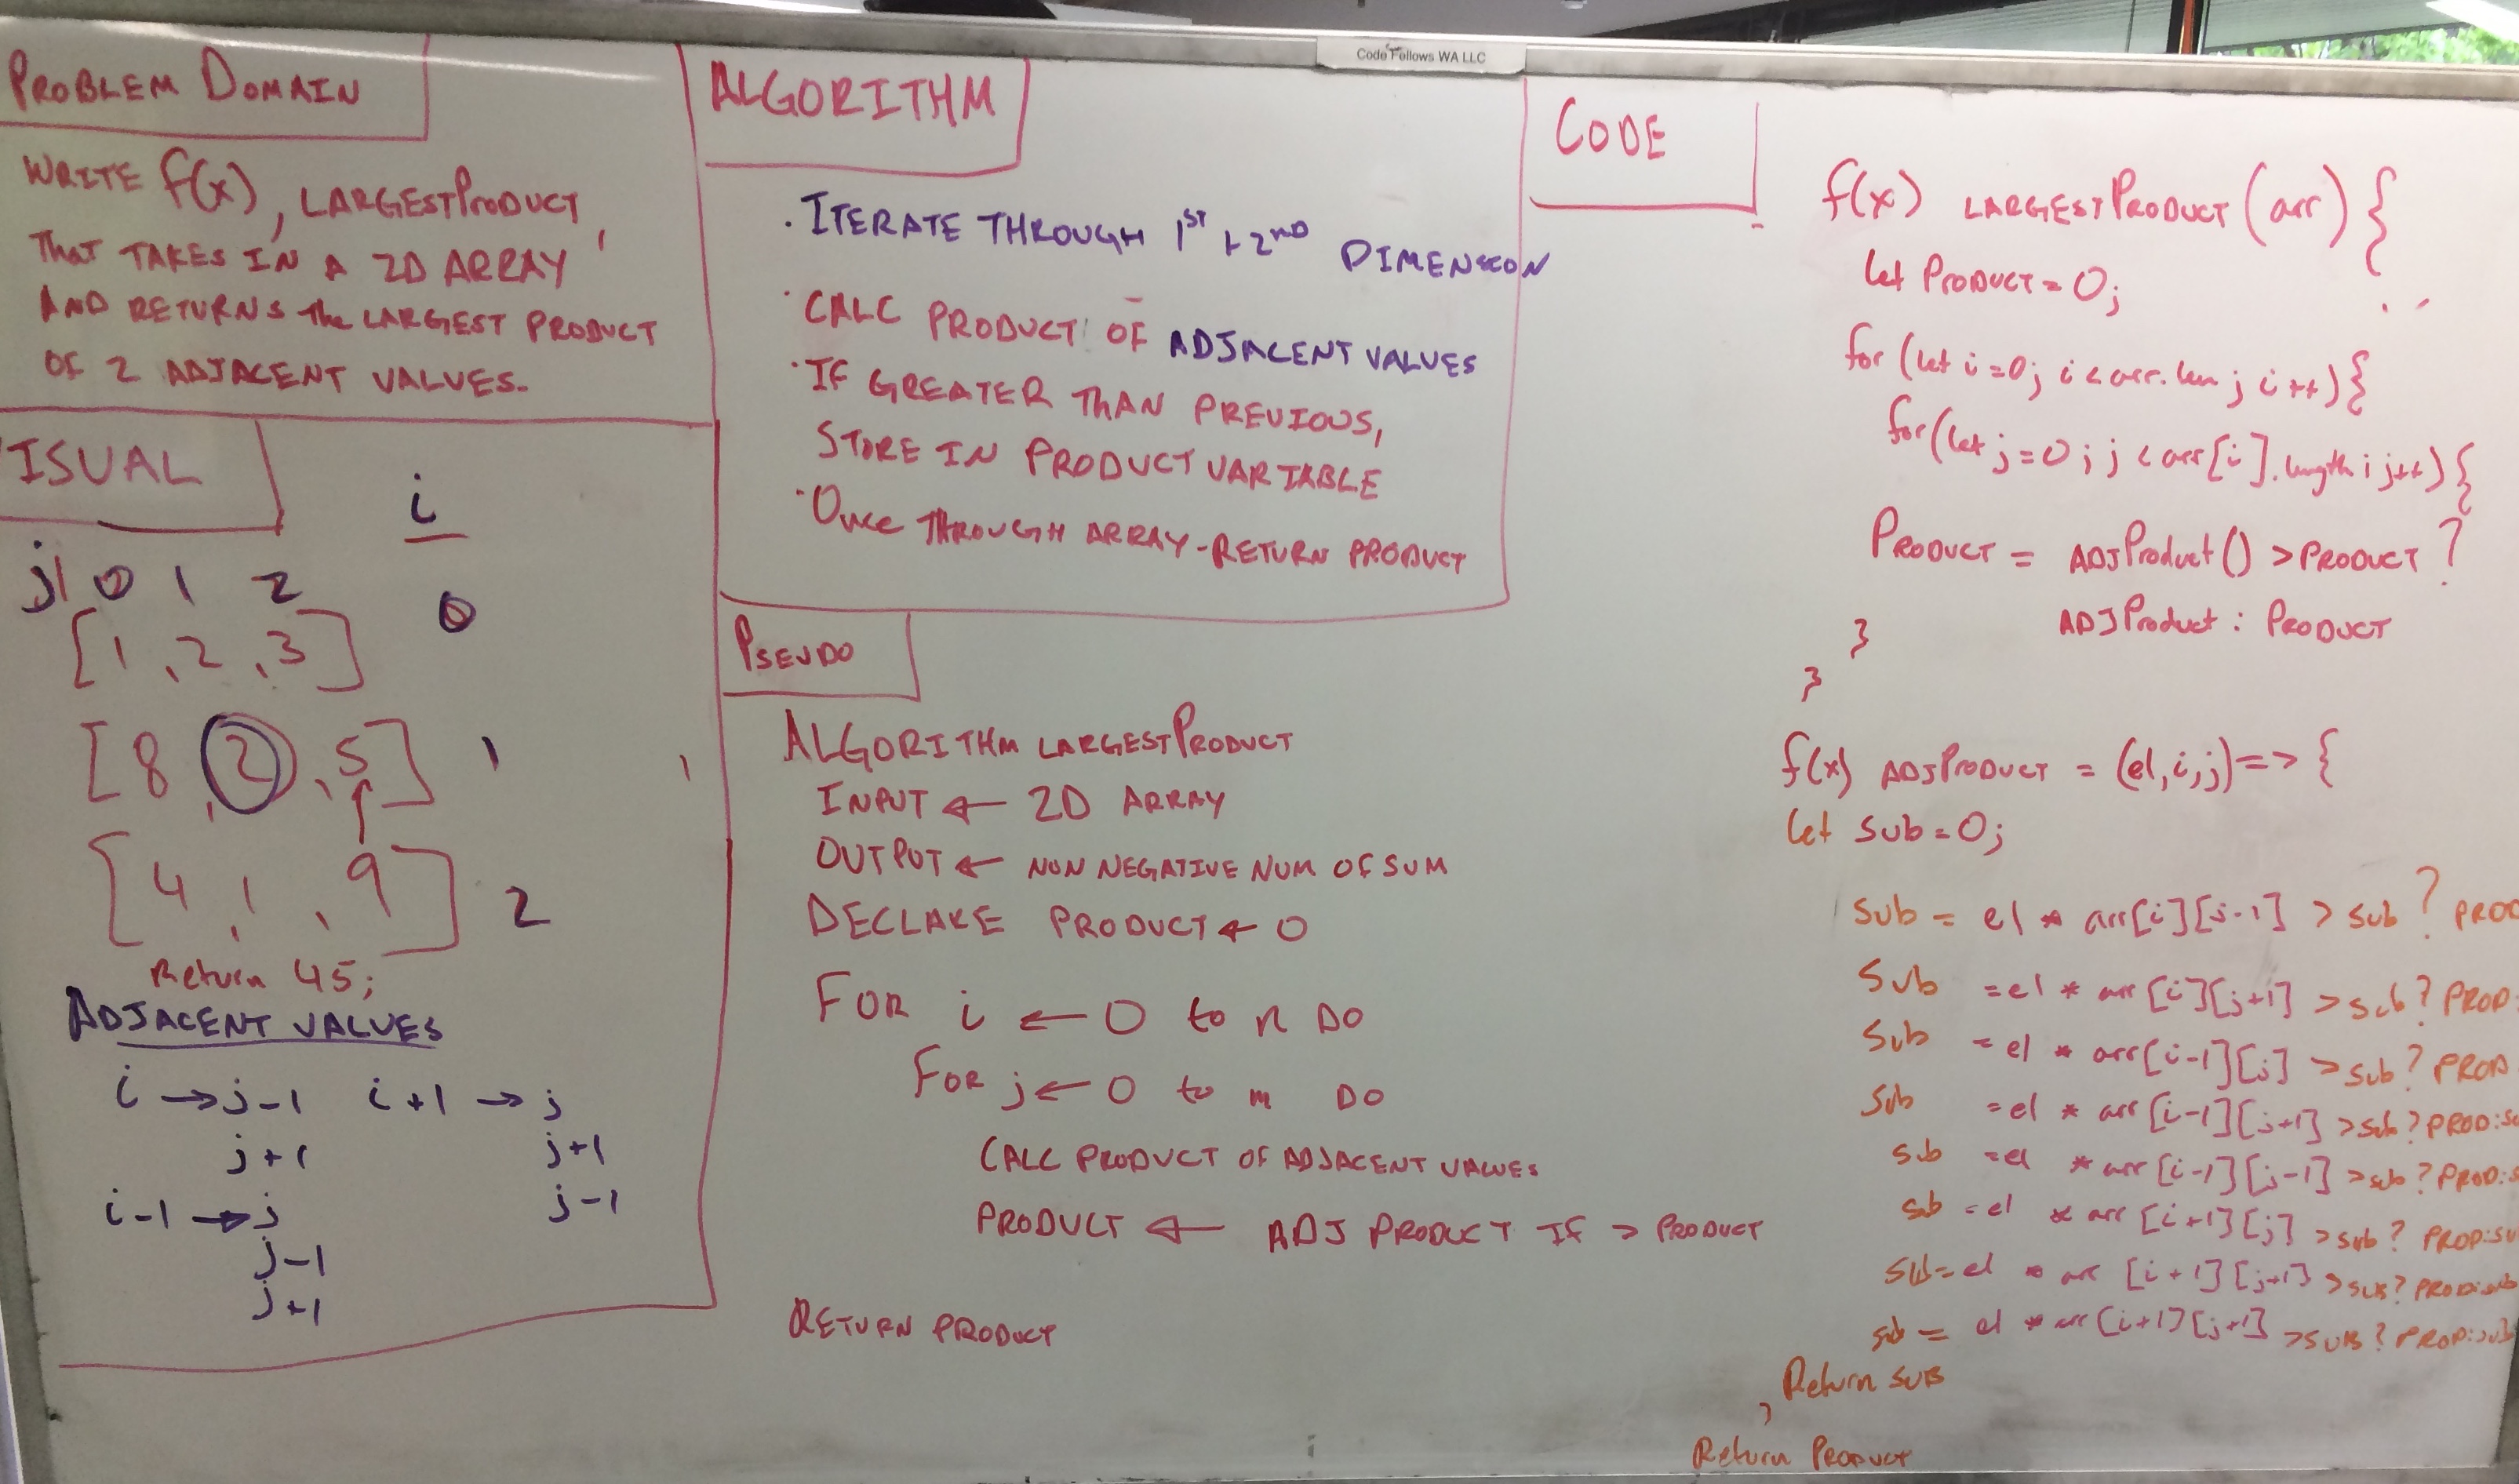 Code Fellows WA LLC
PROBLEM DOMAIN
WRITE f(x), LARGESTPRODUCT,
THAT TAKES IN A 2D ARRAY
AND RETURNS the LARGEST PRODUCT
OF 2 ADJACENT VALUES.
ISUAL
i
j| 0 1 2
[1, 2, 3] 0
[8, 2, 5] 1
[4, 1, 9] 2
Return 45;
ADJACENT VALUES
i → j-1 i+1 → j
j+1 j+1
i-1 → j j-1
j-1
j+1
ALGORITHM
· ITERATE THROUGH 1ST + 2ND DIMENSION
· CALC PRODUCT OF ADJACENT VALUES
· IF GREATER THAN PREVIOUS,
STORE IN PRODUCT VARIABLE
· Once THROUGH ARRAY - RETURN PRODUCT
PSEUDO
ALGORITHM LARGESTPRODUCT
INPUT ← 2D ARRAY
OUTPUT ← NON NEGATIVE NUM OF SUM
DECLARE PRODUCT ← 0
FOR i ← 0 to n DO
FOR j ← 0 to m DO
CALC PRODUCT OF ADJACENT VALUES
PRODUCT ← ADJ PRODUCT IF > PRODUCT
RETURN PRODUCT
CODE
f(x) LARGESTPRODUCT (arr) {
let PRODUCT = 0;
for (let i=0; i < arr.len; i++) {
for (let j=0; j < arr[i].length; j++) {
PRODUCT = ADJProduct() > PRODUCT ?
ADJProduct : PRODUCT
}
}
f(x) ADJPRODUCT = (el,i,j) => {
let sub = 0;
sub = el * arr[i][j-1] > sub ? PROD
sub = el * arr[i][j+1] > sub ? PROD
sub = el * arr[i-1][j] > sub ? PROD
sub = el * arr[i-1][j+1] > sub ? PROD:su
sub = el * arr[i-1][j-1] > sub ? PROD:s
sub = el * arr[i+1][j] > sub ? PROD:su
sub = el * arr[i+1][j+1] > sub ? PROD:sub
sub = el * arr[i+1][j+1] > SUB ? PROD:sub
Return SUB
}
Return PRODUCT